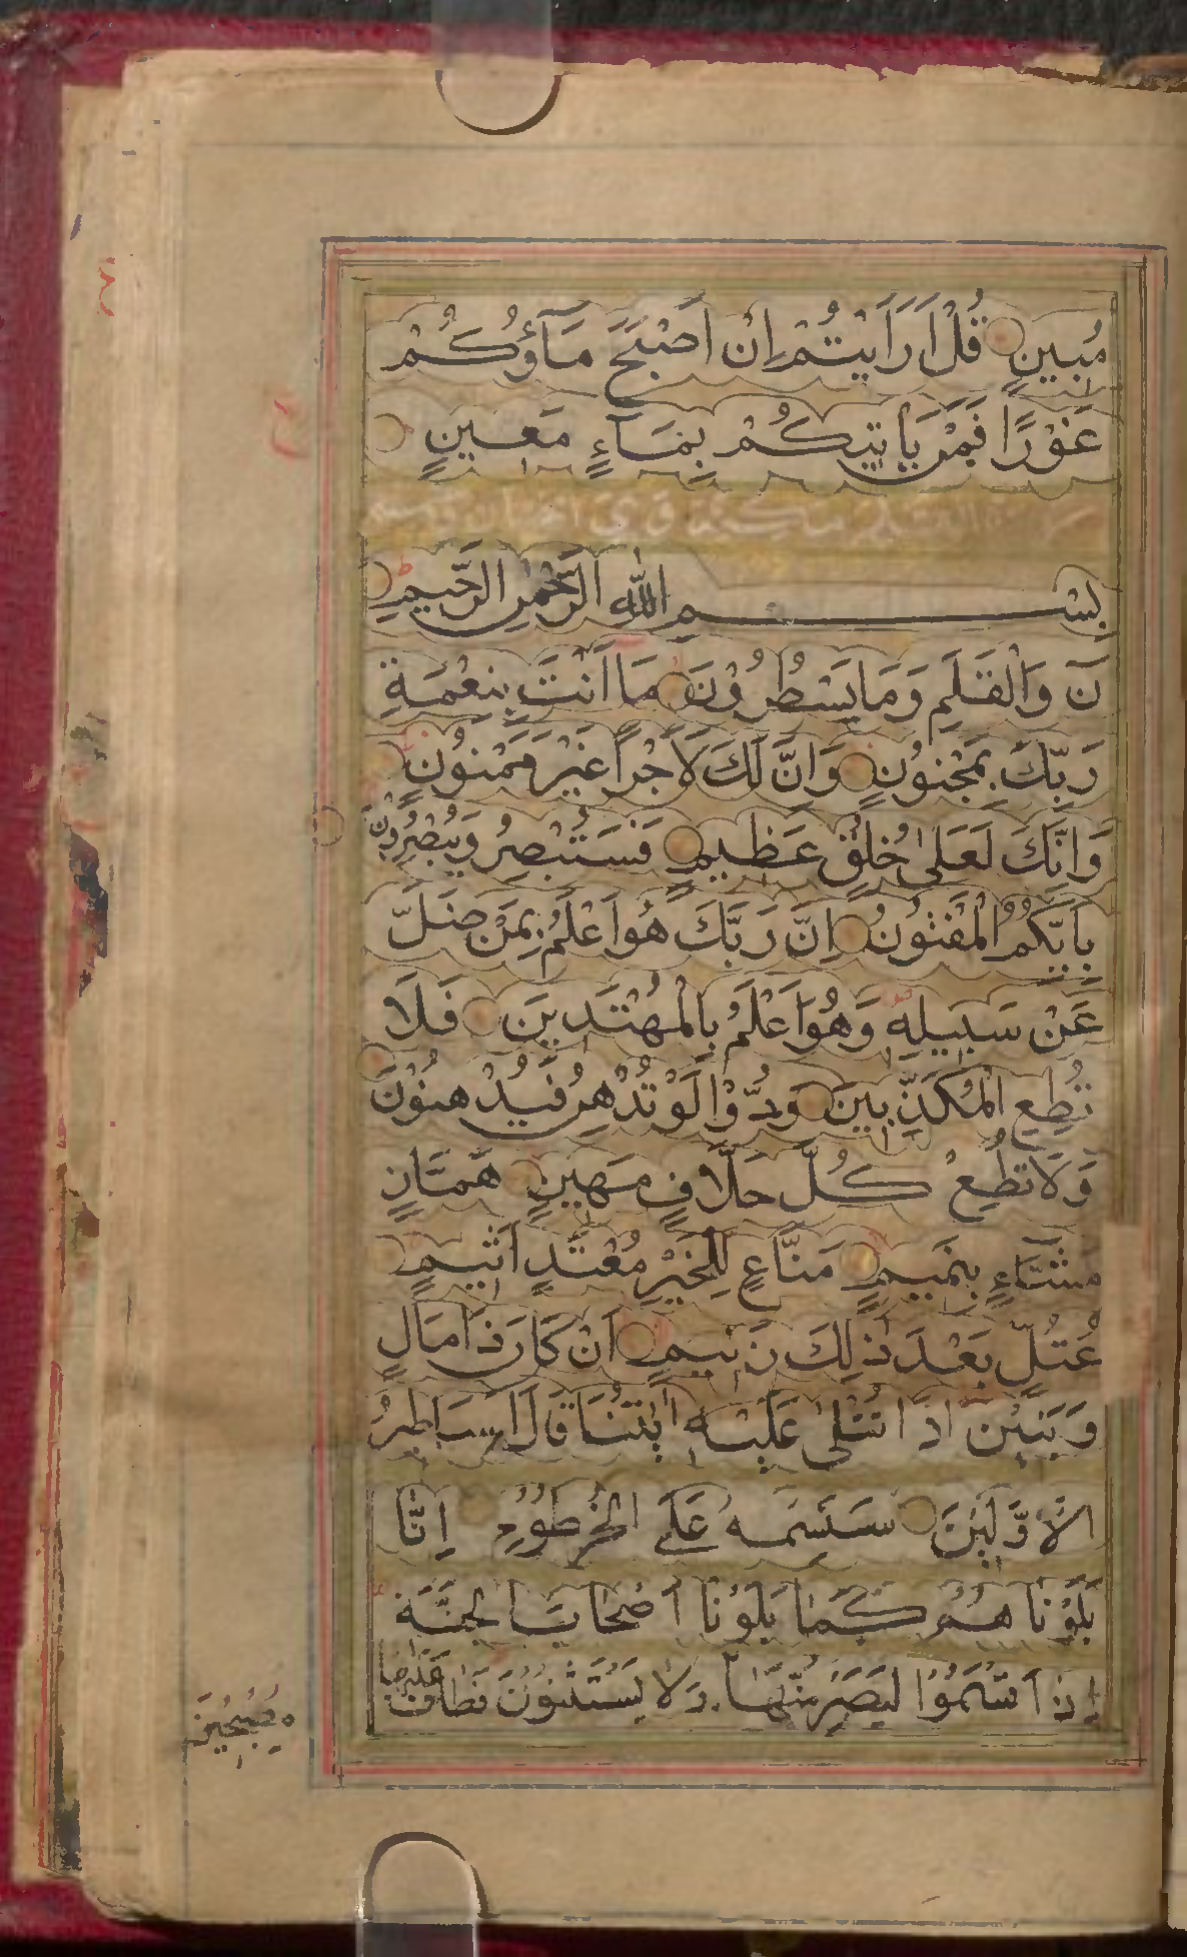 مُبينٍ قُلْ اَرَاَيْتُمْ اِنْ اَصْبَحَ مَآؤُكُمْ
غَوْرًا فَمَنْ يَاْتيكُمْ بِمَآءٍ مَعينٍ
بِسْمِ اللهِ الرَّحْمٰنِ الرَّحيمِ
نٓ وَالْقَلَمِ وَمَا يَسْطُرُونَ مَا اَنْتَ بِنِعْمَةِ
رَبِّكَ بِمَجْنُونٍ وَاِنَّ لَكَ لَاَجْراً غَيْرَ مَمْنُونٍ
وَاِنَّكَ لَعَلىٰ خُلُقٍ عَظيمٍ فَسَتُبْصِرُ وَيُبْصِرُونَ
بِاَيِّكُمُ الْمَفْتُونُ اِنَّ رَبَّكَ هُوَ اَعْلَمُ بِمَنْ ضَلَّ
عَنْ سَبيلِهِ وَهُوَ اَعْلَمُ بِالْمُهْتَدينَ فَلَا
تُطِعِ الْمُكَذِّبينَ وَدُّوا لَوْ تُدْهِنُ فَيُدْهِنُونَ
وَلَا تُطِعْ كُلَّ حَلَّافٍ مَهينٍ هَمَّازٍ
مَشَّآءٍ بِنَميمٍ مَنَّاعٍ لِلْخَيْرِ مُعْتَدٍ اَثيمٍ
عُتُلٍّ بَعْدَ ذٰلِكَ زَنيمٍ اَنْ كَانَ ذَا مَالٍ
وَبَنينَ اِذَا تُتْلىٰ عَلَيْهِ اٰيٰتُنَا قَالَ اَسَاطيرُ
الْاَوَّلينَ سَنَسِمُهُ عَلَى الْخُرْطُومِ اِنَّا
بَلَوْنَاهُمْ كَمَا بَلَوْنَا اَصْحَابَ الْجَنَّةِ
اِذْ اَقْسَمُوا لَيَصْرِمُنَّهَا وَلَا يَسْتَثْنُونَ فَطَافَ عَلَيْهَا
مُصْبِحينَ